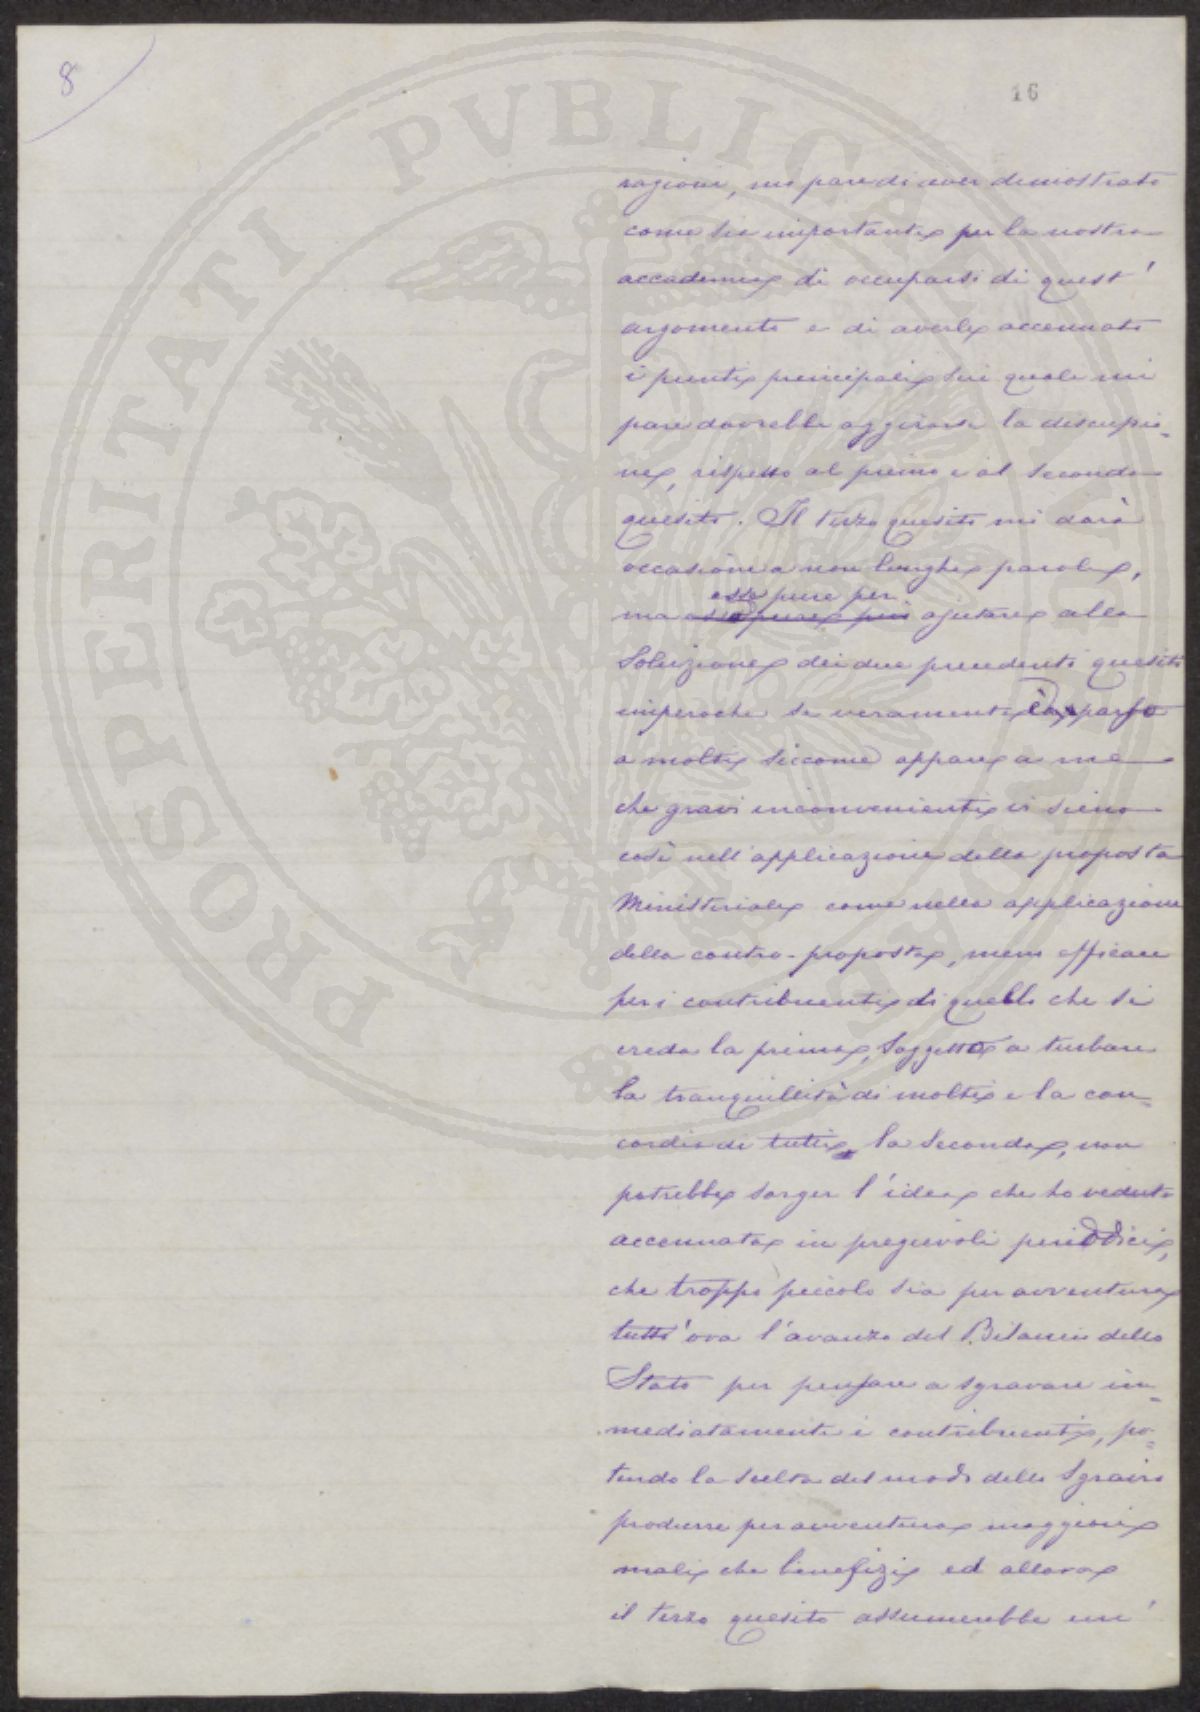 8
16
ragioni, mi pare di aver dimostrato
come sia importante per la nostra
accademia di occuparsi di quest'
argomento e di averle accennato
i punti principali sui quali mi
pare dovrebbe aggirarsi la discussio-
ne, rispetto al primo e al secondo
quesito. Il terzo quesito mi darà
occasione a non lunghe parole,
esso pure per
ma esso pure può ajutare alla
soluzione dei due precedenti quesiti
imperoche se veramente è apparso
a molti siccome appare a me
che gravi inconvenienti vi sieno
così nell'applicazione della proposta
Ministeriale come nella applicazione
della contro-proposta, meno efficace
per i contribuenti di quello che si
creda la prima, soggetta a turbare
la tranquillità di molti e la con-
cordia di tutti, la seconda, non
potrebbe sorger l'idea che ho veduto
accennata in pregievoli periodici,
che troppo piccolo sia per avventura
tutt'ora l'avanzo del Bilancio dello
Stato per pensare a sgravare im-
mediatamente i contribuenti, po-
tendo la scelta del modo dello sgravio
produrre per avventura maggiori
mali che benefizi ed allora
il terzo quesito assumerebbe un'
PROSPERITATI PVBLICAE